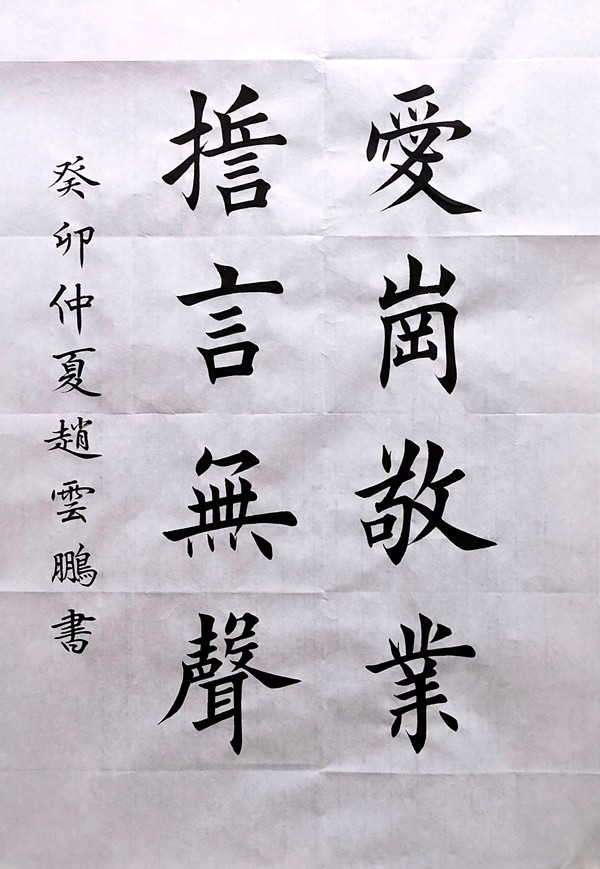 愛崗敬業
誓言無聲
癸卯仲夏趙雲鵬書